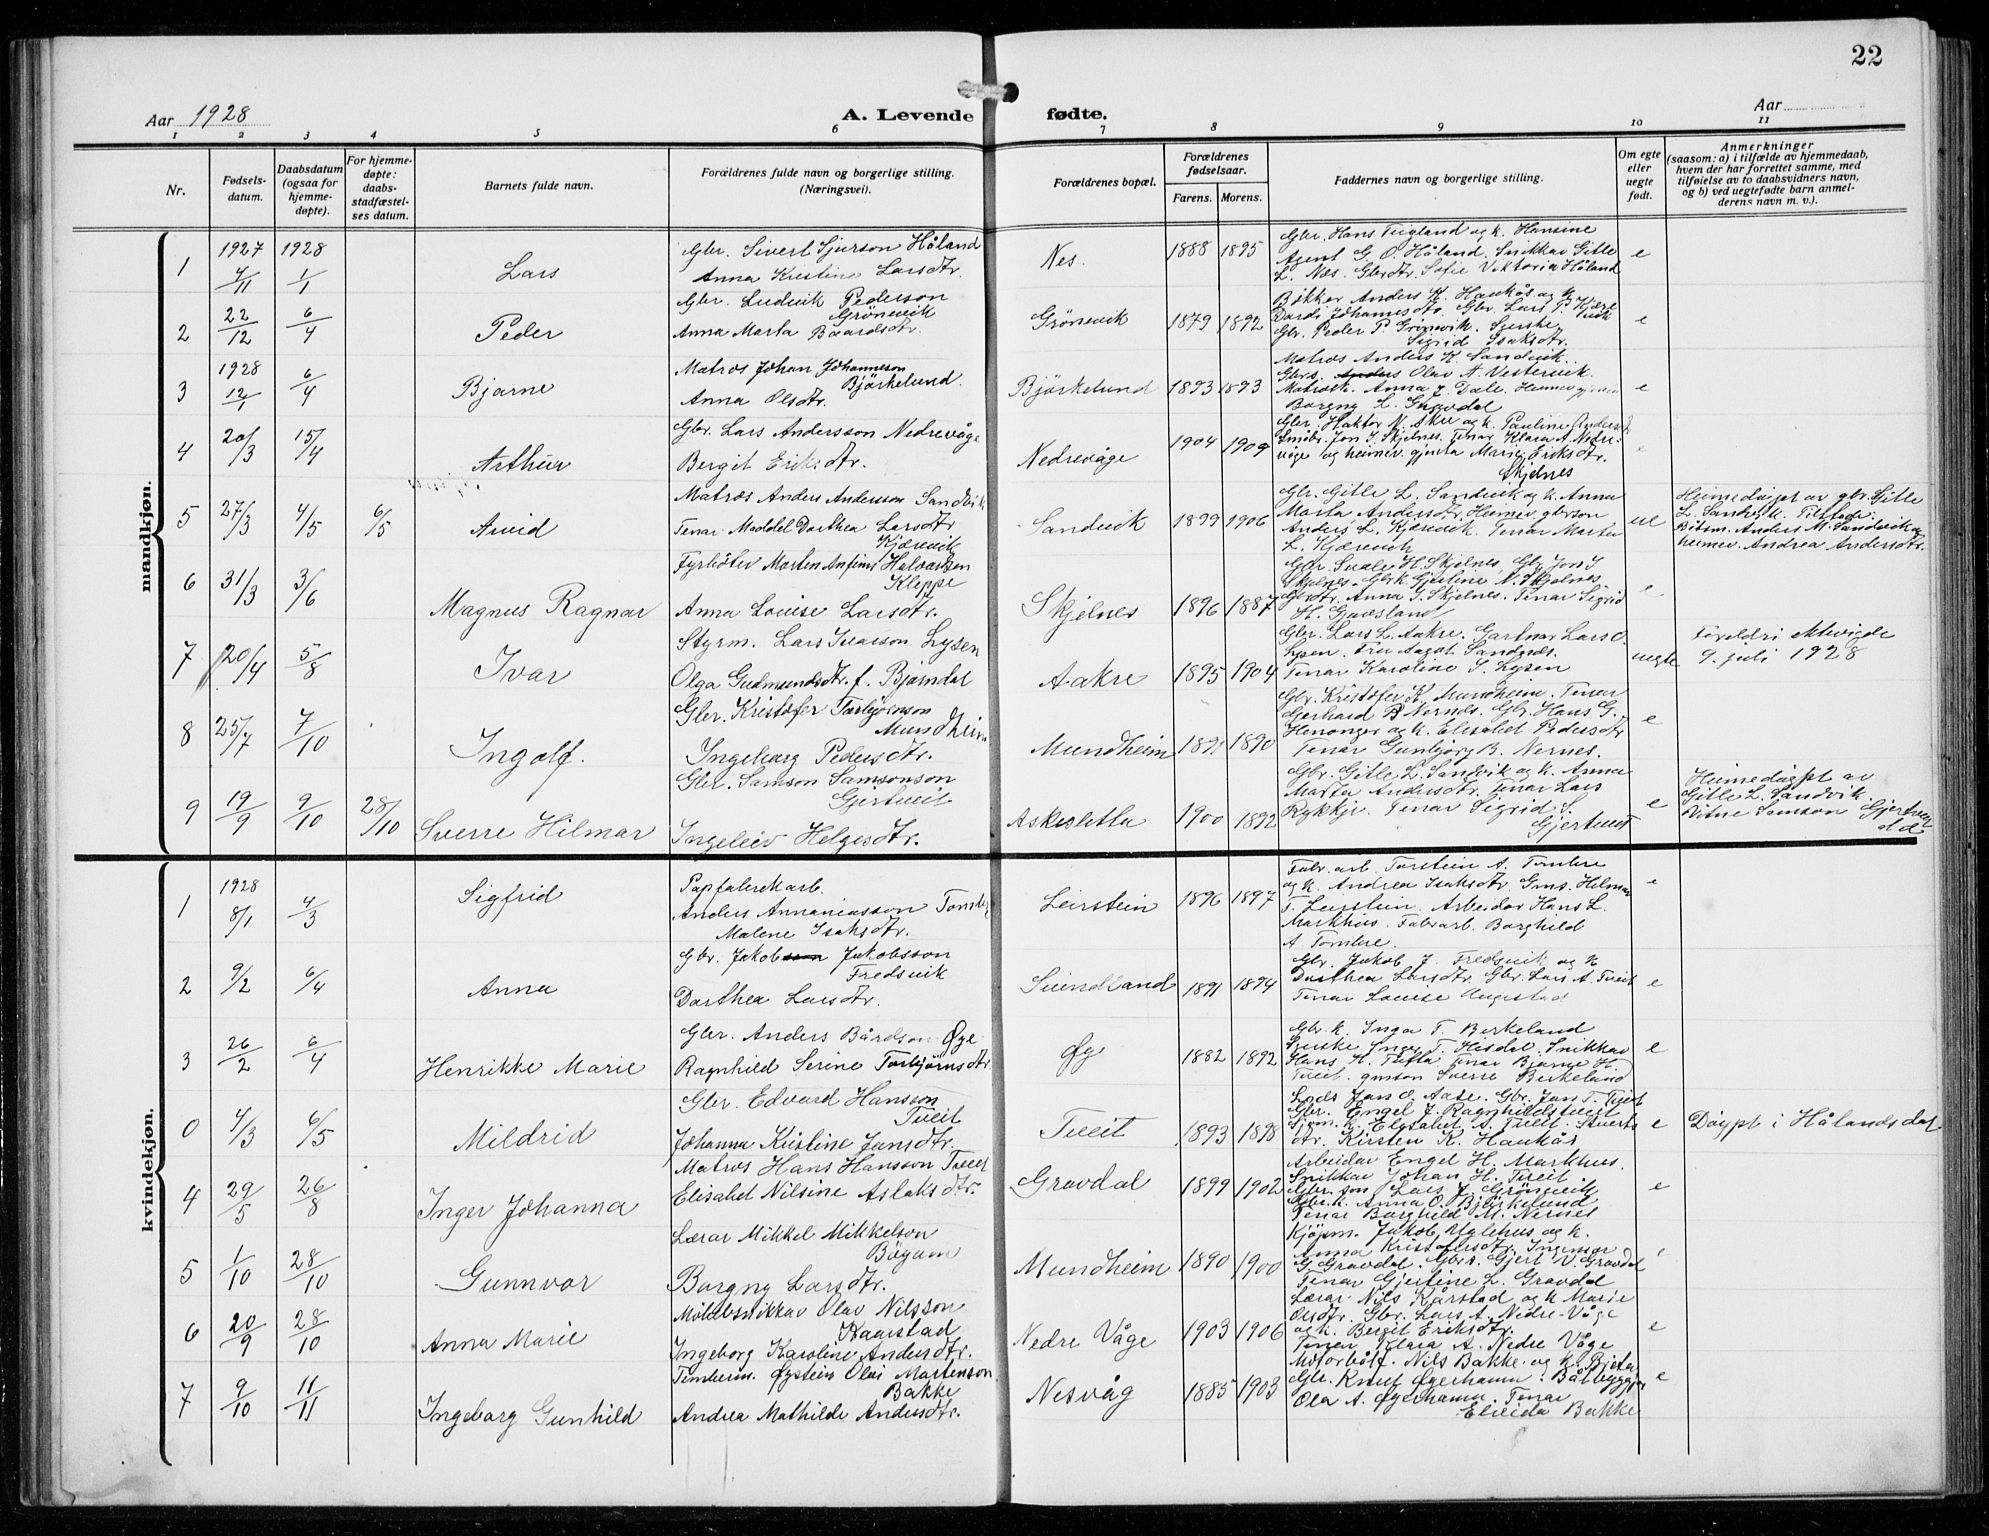 22
Aar 1928
A. Levende fødte.
Aar
1 2 3 4 5 6 7 8 9 10 11
Nr.
Fødselsdatum.
Daabsdatum (ogsaa for hjemmedøpte).
For hjemmedøpte: daabsstadfæstelses datum.
Barnets fulde navn.
Forældrenes fulde navn og borgerlige stilling. (Næringsvei).
Forældrenes bopæl.
Forældrenes fødselsaar.
Farens. Morens.
Faddernes navn og borgerlige stilling.
Om egte eller uegte født.
Anmerkninger
(saasom: a) i tilfælde av hjemmedaab, hvem der har forrettet samme, med tilføielse av to daabsvidners navn, og b) ved uegtefødte barn anmelderens navn m. v.).
mandkjøn.
1 1927 4/11 1928 1/1 Lars
Gbr. Sivert Sjurson Håland
Anna Kristine Larsdtr.
Nes. 1888 1895
Gbr. Hans Teigland og k. Hansine
Agent G. O. Håland. Snikkar Gitle
L. Næs. Gbrdtr. Sofie Viktoria Håland
e
2 22/12 6/4 Peder
Gbr. Ludvik Pederson
Grönevik
Anna Marta Baardsdtr.
Grönevik 1879 1892
Bøkker Anders K. Haukås og k.
Dordi Johannesdtr. Gbr. Lars P. Kjære
vik
Gbr. Peder P. Grönevik. Syerske
Sigrid Isaksdtr.
e
3 1928 12/1 6/4 Bjarne
Matros Johan Johanneson
Björkelund.
Anna Olsdtr.
Björkelund 1893 1893
Matros Anders K. Sandvik.
Gbrs. Olav A. Vestervik.
Matrosk. Anna J. Dale. Heimev. gjenta
Borgny L. Gravdal
e
4 20/3 15/4 Arthur
Gbr. Lars Andersson Nedrevåge
Bergit Eriksdtr.
Nedrevåge 1904 1909
Gbr. Haktor N. Akre og k. Pauline Andersd
Småbr. Jon J. Skjelnes. Tenar Klara A. Nedre-
våge og heimev. gjenta Marie Eriksdtr.
Skjelnes
e
5 27/3 4/5 6/5 Arvid
Matros Anders Andersson Sandvik
Tenar Maddel Dorthea Larsdtr
Kjærevik
Sandvik 1899 1906
Gbr. Gitle L. Sandvik og k. Anna
Marta Andersdtr. Heimev. gbrson
Anders L. Kjærevik. Tenar Marta
L. Kjærevik
ue
Heimedöypt av gbr. Gitle
L. Sandvik. Tilstade:
Båtsm. Anders M. Sandvik og
heimev. Andrea Andersdtr.
6 31/3 3/6 Magnus Ragnar
Fyrbøter Morten Anfinn Halvorsen
Kleppe
Anna Louise Larsdtr.
Skjelnes 1896 1887
Gbr. Svale H. Skjelnes, Gbr Jon J
Skjelnes. Gbrk. Gjertine N. Skjelnes
Gbrdtr. Anna J. Skjelnes. Tenar Sigrid
e
7 20/4 5/8 Ivar
Styrm. Lars Ivarson Lysen
Olga Gudmundsdtr. f. Björndal
Aakre 1895 1904
Gbr. Lars L. Aakre. Gartnar Lars O.
Lysen. Fru Aagot Sandnes.
Tenar Karoline S. Lysen
uegte
Foreldri ektevigde
9. juli 1928
8 25/7 7/10 Ingolf.
Gbr. Kristofer Torbjörnson
Mundheim
Ingeborg Pedersdtr.
Mundheim 1891 1890
Gbr. Kristofer K. Mundheim. Tenar
Gerhard B Nernes. Gbr. Hans G.
Henanger og k. Elisabet Pedersdtr
Tenar Gunbjörg B. Nernes.
e
9 19/9 9/10 28/10 Sverre Hilmar
Gbr. Samson Samsonson
Gjertveit
Ingeleiv Helgesdtr.
Askesletta 1900 1892
Gbr. Gitle L. Sandvik og k. Anna
Marta Andersdtr. Tenar Lars
Rykkje. Tenar Sigrid S.
Gjertveit
e
Heimedöypt av
Gitle L. Sandvik.
Vitne Samson Gjertveit
kvindekjøn.
1 1928 8/1 4/3 Sigfrid
Papfabrekarb.
Anders Annaniasson Tombre
Malene Isaksdtr.
Leirstein 1896 1897
Fabr. arb. Torstein A. Tombre
og k. Andrea Isaksdtr. Gms. Hilmar
T. Leirstein. Arbeidar Hans L.
Markhus. Fabrarb. Borghild
A. Tombre.
e
2 9/2 6/4 Anna
Gbr. Jakob Jakobsson
Fredsvik
Dorthea Larsdtr.
Svindland 1891 1894
Gbr. Jakob J. Fredsvik og k
Dorthea Larsdtr. Gbr. Lars A. Tveit
Tenar Louise Augestad
e
3 26/2 6/4 Henrikke Marie
Gbr. Anders Bårdson Øye
Ragnhild Serine Torbjörnsdtr
Øy 1882 1892
Gbr.k. Inga T. Berkeland
Syerske Inger T. Hisdal. Snikkar
Hans H. Tufta Tenar Bjarne H.
Tveit. gmson Sverre Berkeland
e
0 4/3 6/5 Mildrid
Gbr. Edvard Hansson
Tveit
Johanna Kristine Jansdtr.
Tveit 1893 1898
Lods Jan O. Aase. Gbr. Jan T. Tveit
Gbr. Engel J. Ragnhildstveit
Gjm.k. Elisabet A. Tveit. Stuerts
dtr. Kirsten K. Haukås
e
Döypt i Hålandsdal
4 29/5 26/8 Inger Johanna
Matros Hans Hansson Tveit
Elisabet Nilsine Aslaksdtr.
Gravdal 1899 1902
Arbeidar Engel H. Markhus.
Snikkar Johan H. Tveit
Gbr. son Lars J. Grönevik
Gbr.k. Anna O. Björkelund
Tenar Borghild M. Nernes
e
5 1/10 28/10 Gunnvor
Lærar Mikkel Mikkelson
Böyum
Borgny Larsdtr.
Mundheim 1890 1900
Kjöpm. Jakob Uglehus og k.
Anna Kristofersdtr. Ingeniør
G Gravdal. Gbrs. Gjert V. Gravdal
Tenar Gjertine L. Gravdal
6 20/9 28/10 Anna Marie
Möbelsnikkar Olav Nilsson
Kaarstad
Ingeborg Karoline Andersdtr.
Nedre Våge 1903 1906
Lærar Nils Kårstad og k Marie
Olsdtr. Gbr. Lars A. Nedre-Våge
og k. Bergit Eriksdtr.
Tenar Klara A. Nedre Våge
e
7 9/10 11/11 Ingeborg Gunhild
Timberm. Øystein Olai Martenson
Bakke
Andrea Mathilde Andersdtr.
Nesvåg 1885 1903
Motorbåtf. Nils Bakke og k. Brita
Gbr. Knut Øyerhamn. Båtbyggjar
Ola A. Øyerhamn. Tenar
Elvida Bakke
e